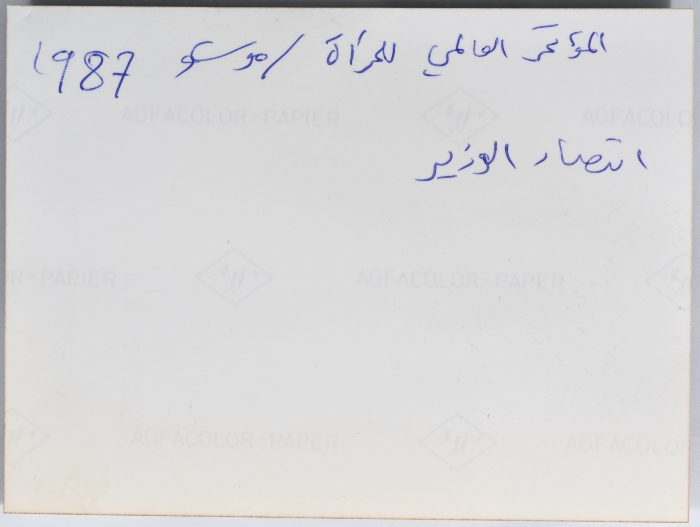 المؤتمر العالمي للمرأة / موسكو 1987
انتصار الوزير
AGFACOLOR-PAPIER AGFACOLOR
R-PAPIER AGFACOLOR-PAPER
AGFACOLOR-PAPER AGFACOLOR